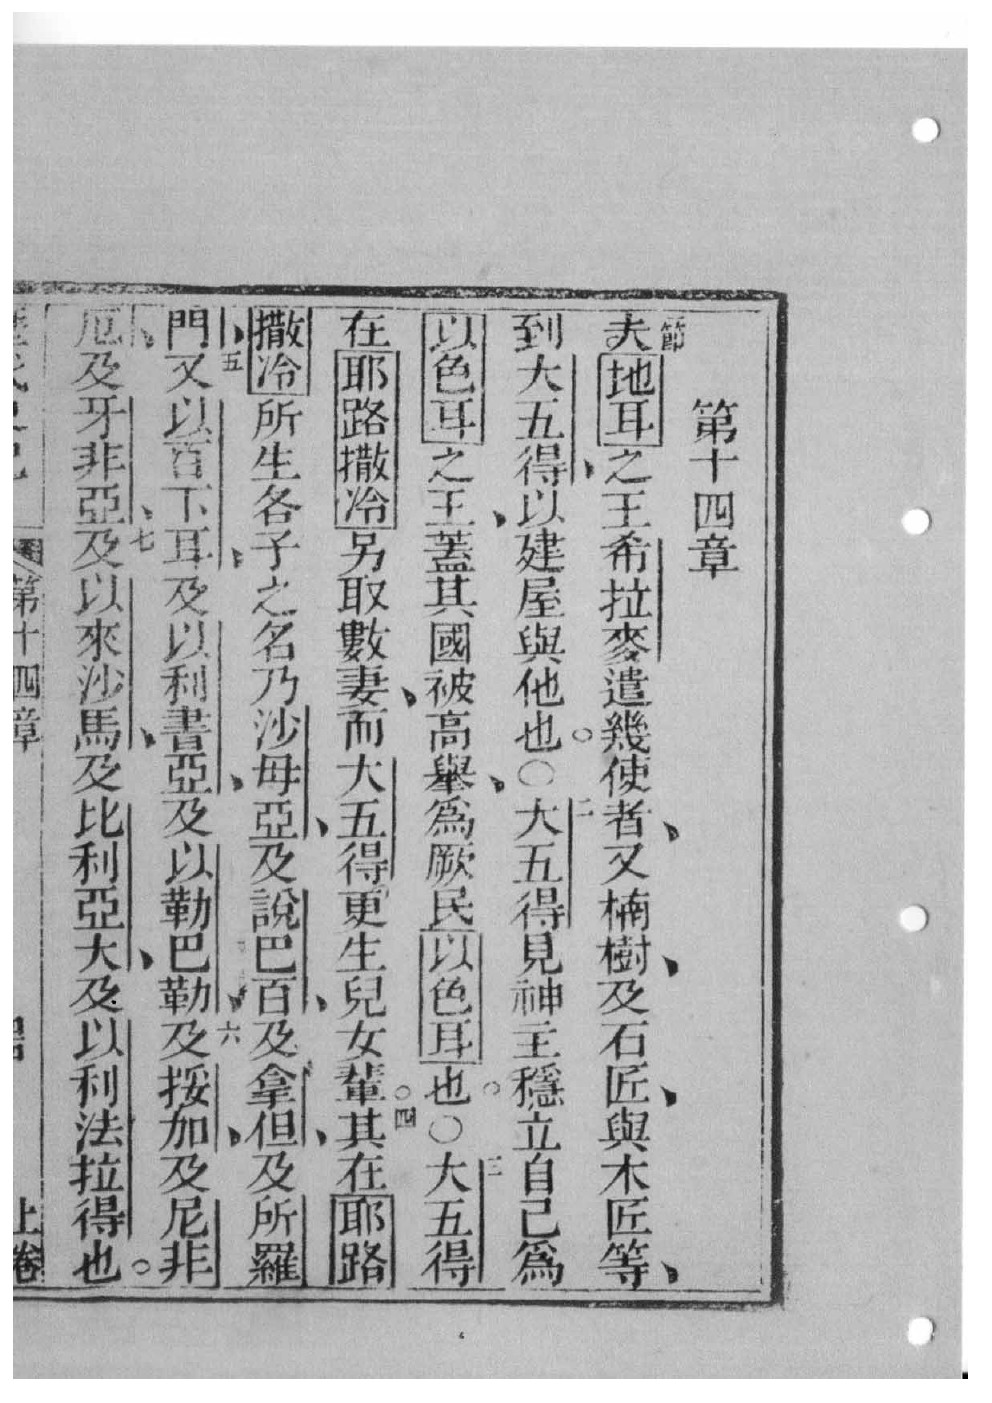 第十四章
節夫地耳之王希拉麥遣幾使者、又楠樹、及石匠、與木匠等、
到大五得、以建屋與他也。○二大五得見神主穩立自己爲
以色耳之王、蓋其國被高舉、爲厥民以色耳也。○三大五得
在耶路撒冷另取數妻、而大五得更生兒女輩。四其在耶路
撒冷所生各子之名乃沙母亞、及說巴百、及拿但、及所羅
門、五又以百下耳、及以利書亞、及以勒巴勒、六及挼加、及尼非
厄、及牙非亞、七及以來沙馬、及比利亞大、及以利法拉得也。
第十四章
上卷